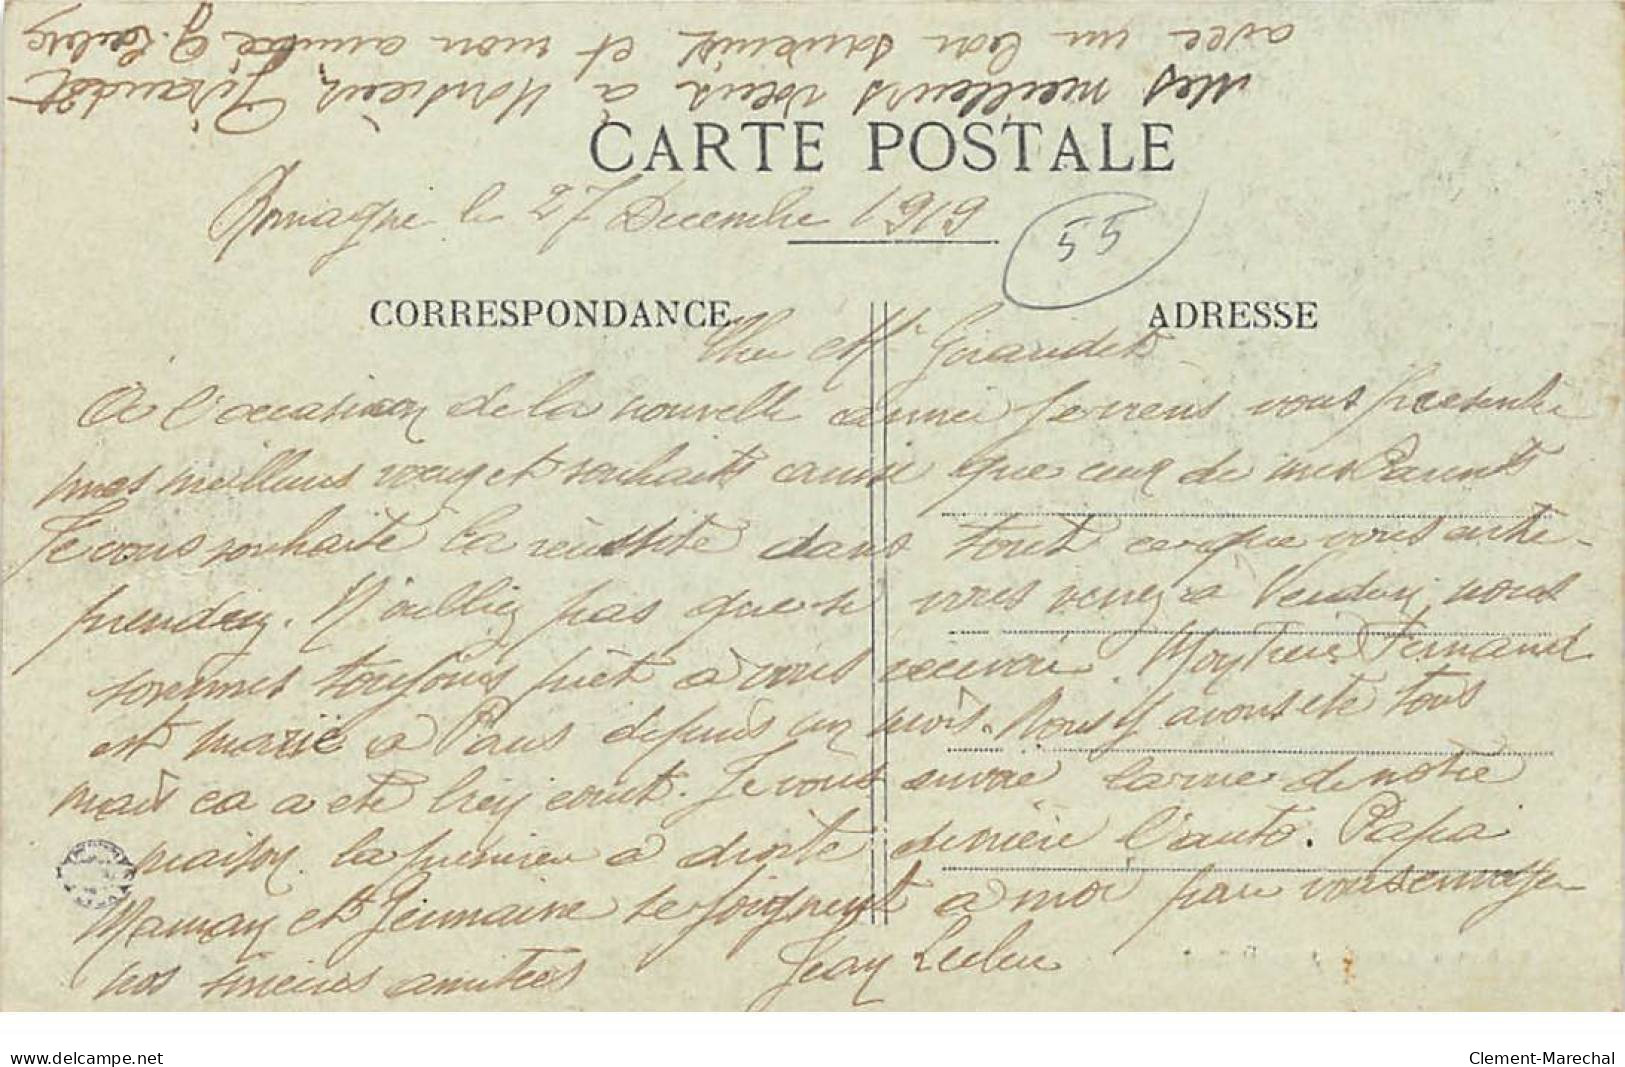 Mes meilleurs vœux à Monsieur Giraudet
avec un bon souvenir et mon amitié G.
CARTE POSTALE
Romagne le 27 Decembre 1919
55
CORRESPONDANCE
ADRESSE
Cher Mr Giraudet
A l'occasion de la nouvelle année je viens vous présenter
mes meilleurs vœux et souhaits ainsi que ceux de mes Parents
Je vous souhaite la réussite dans tout ce que vous entre-
prendrez. N'oubliez pas que si vous venez à Verdun, nous
sommes toujours prêt à vous recevoir. Mon frère Fernand
est marié a Paris depuis un mois. Nous y avons été tous
mais ca a été bien court. Je vous envoie la vue de notre
maison. la première a droite derrière l'auto. Papa
Maman et Germaine se joignent a moi pour vous envoyer
nos sincères amitiés
Jean Leclerc
www.delcampe.net
Clement-Marechal